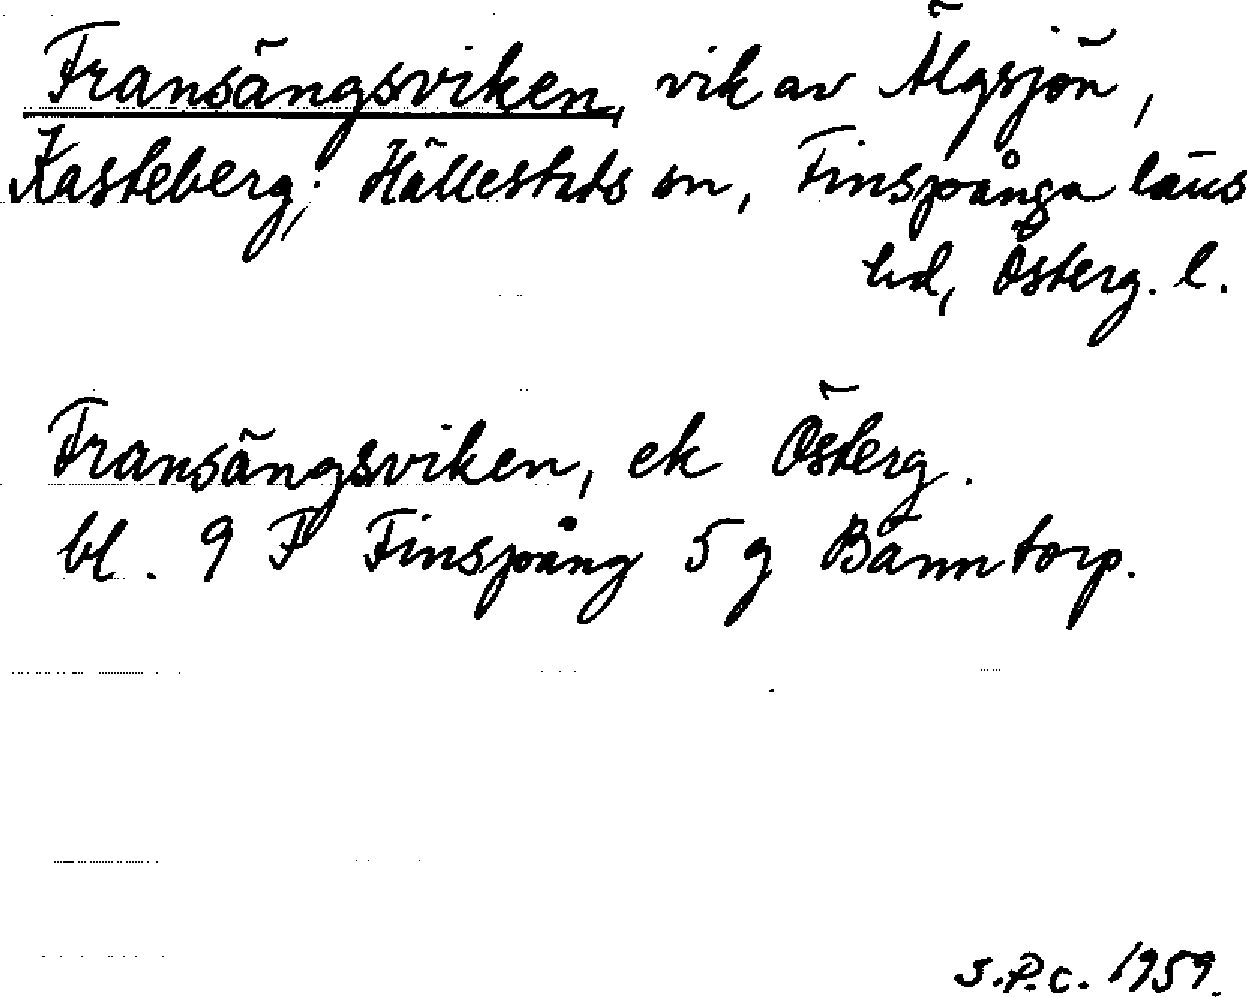 Fransängsviken, vik av Älgsjön,
Kasteberg, Hällestads sn, Finspånga läns
hd, Österg. l.
Fransängsviken, ek Österg.
bl. 9 F Finspång 5 g Bänntorp.
S.P.C. 1959.